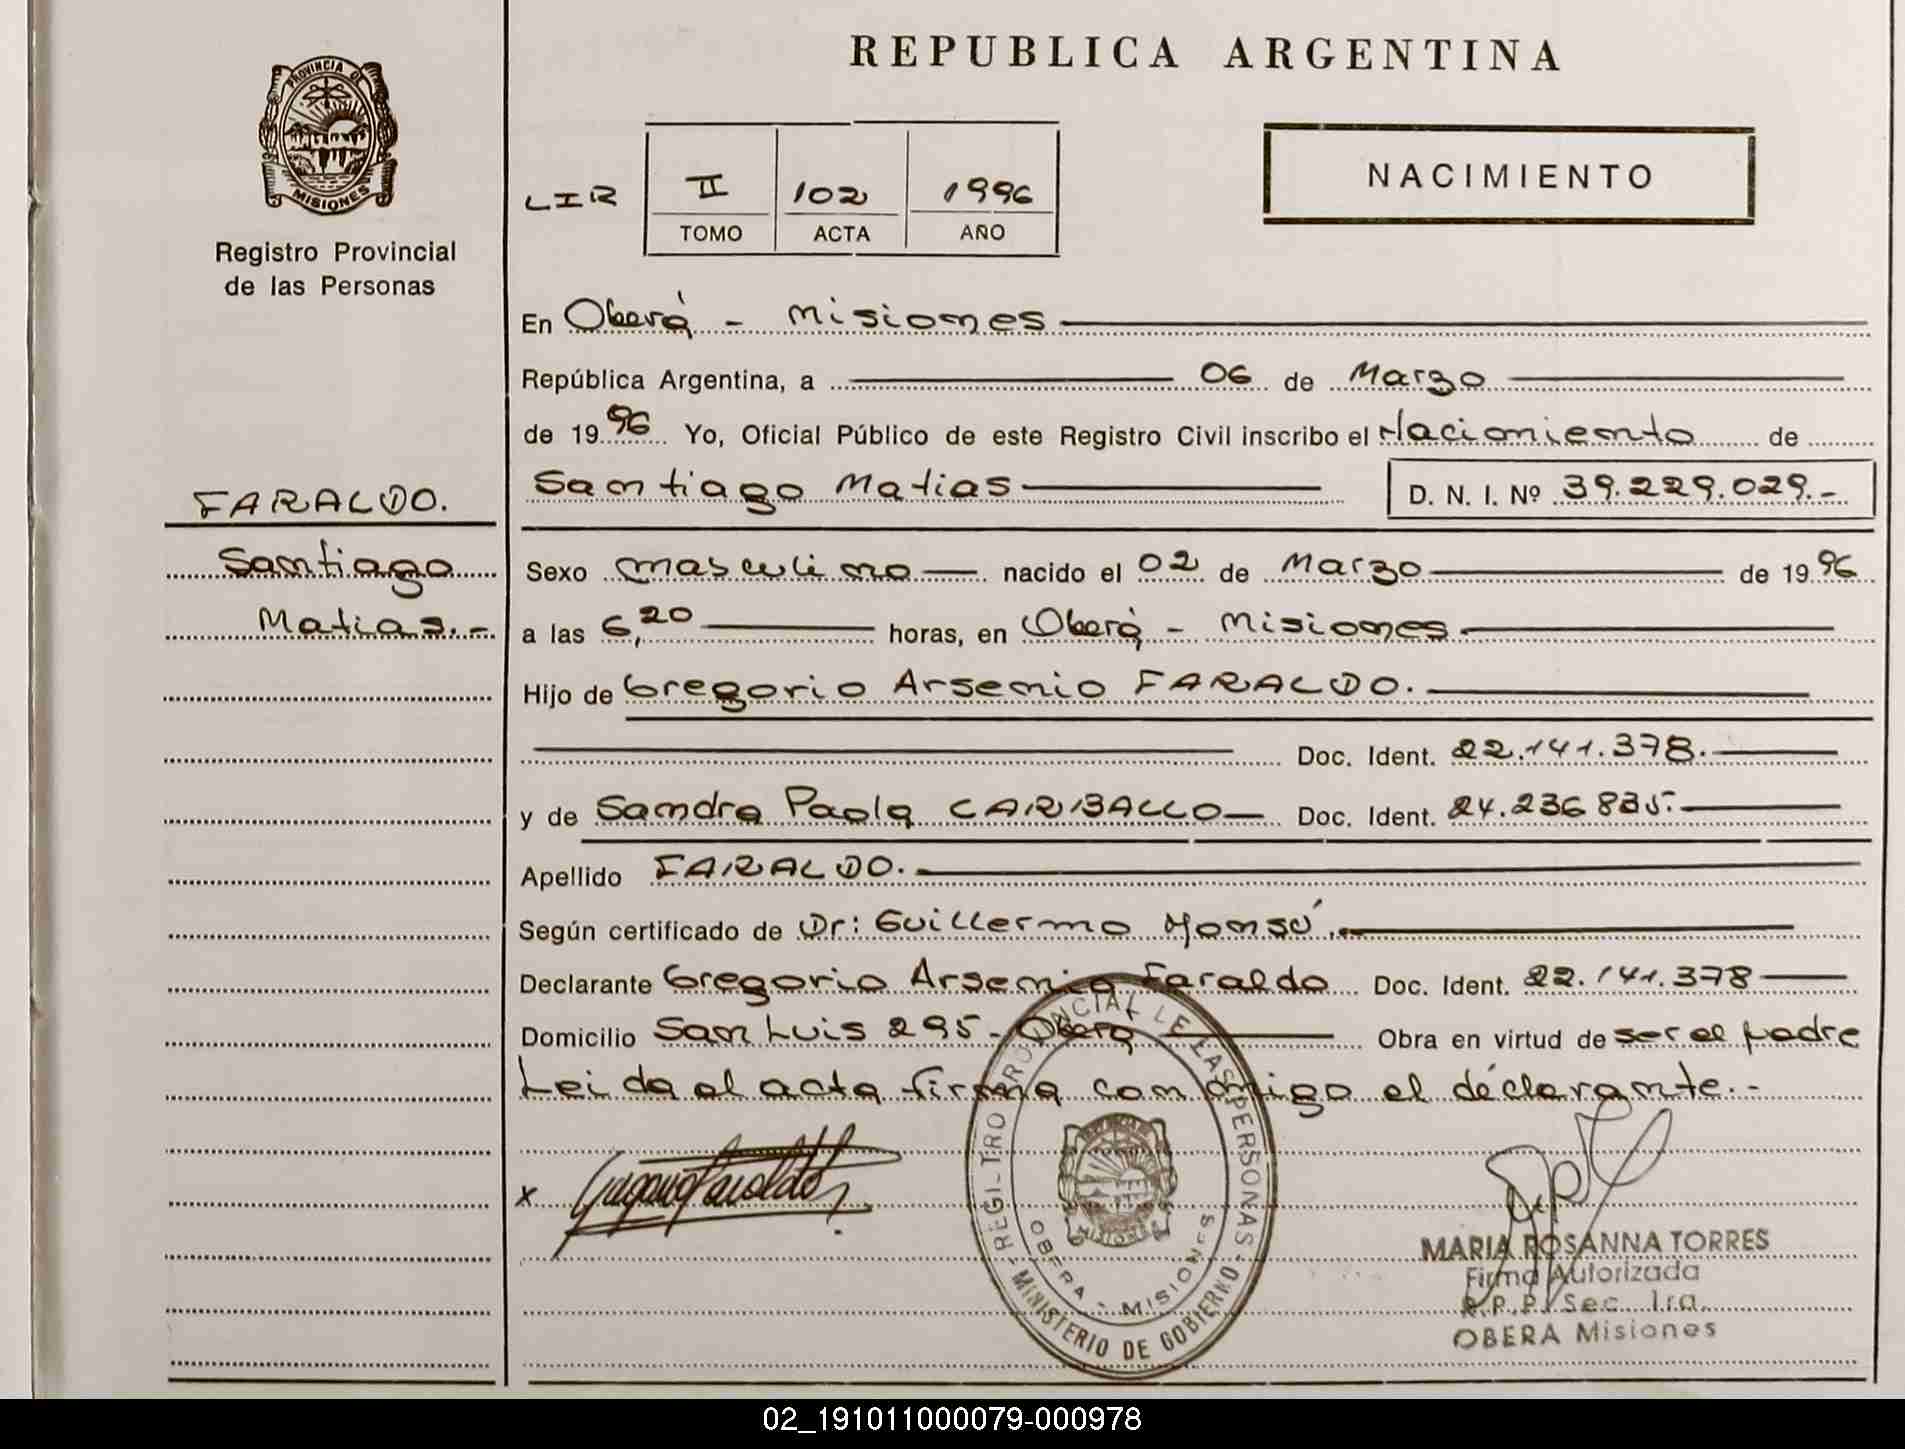 REPUBLICA ARGENTINA
PROVINCIA DE
MISIONES
Registro Provincial
de las Personas
NACIMIENTO
LIR II 102 1996
TOMO ACTA AÑO
En Oberá - Misiones
República Argentina, a 06 de Marzo
de 1996 Yo, Oficial Público de este Registro Civil inscribo el Nacimiento de
Santiago Matias D. N. I. Nº 39.229.029.-
FARALDO.
Santiago
Matias.-
Sexo masculino nacido el 02 de Marzo de 1996
a las 6,20 horas, en Oberá - Misiones
Hijo de Gregorio Arsenio FARALDO.
Doc. Ident. 22.141.378.
y de Sandra Paola CARBALLO Doc. Ident. 24.236.835.
Apellido FARALDO.
Según certificado de Dr: Guillermo
Declarante Gregorio Arsenio Faraldo Doc. Ident. 22.141.378
Domicilio San Luis 295- Oberá Obra en virtud de ser el padre
Leida el acta firma conmigo el declarante.-
x
REGISTRO PROVINCIAL DE LAS PERSONAS
OBERA - MISIONES
MISIONES
MINISTERIO DE GOBIERNO
MARIA ROSANNA TORRES
Firma Autorizada
R.P.P. Sec. 1ra.
OBERA Misiones
02_191011000079-000978